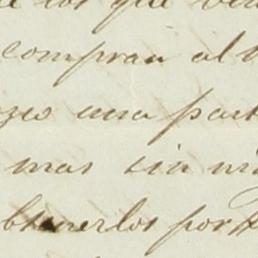 los que
compran al
una part
mas sin
obtenerlos por